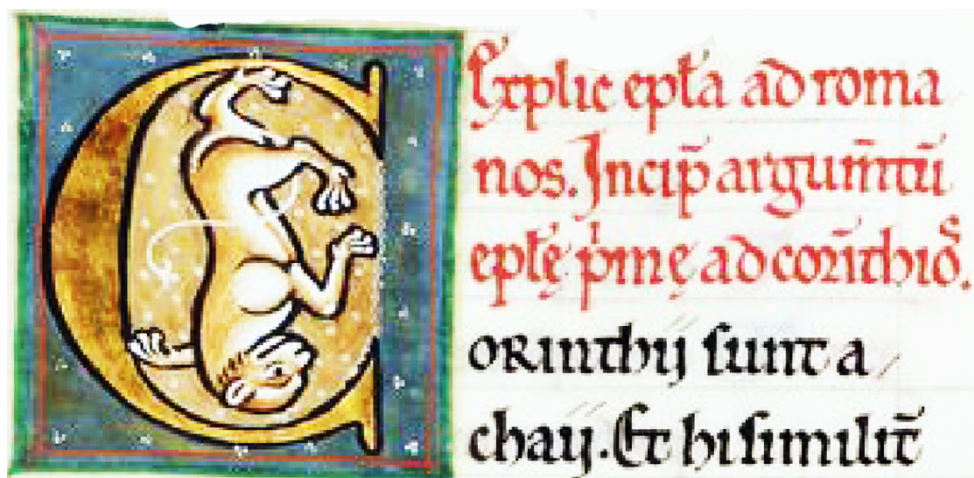 Explic epl̄a ad roma
nos. Incip̄ argum̄tū
epl̄ę p'mę ad corīthioꝰ.
C orinthij sunt a
chaij. Et hi similit̄